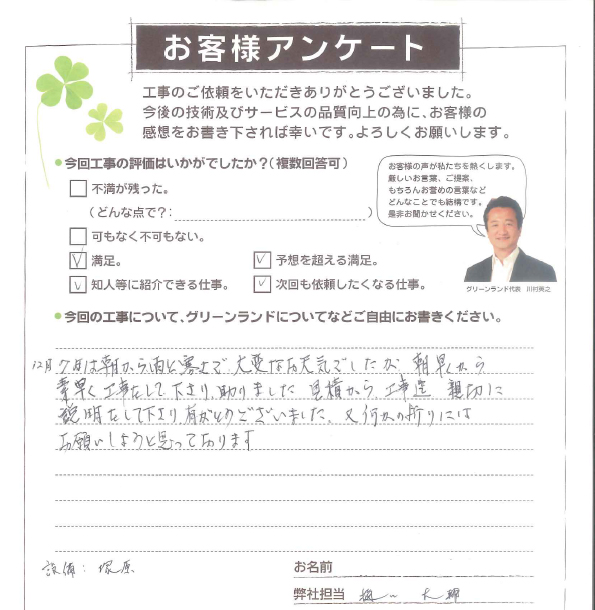 お客様アンケート
工事のご依頼をいただきありがとうございました。
今後の技術及びサービスの品質向上の為に、お客様の
感想をお書き下されば幸いです。よろしくお願いします。
●今回工事の評価はいかがでしたか?(複数回答可)
不満が残った。
(どんな点で?: )
可もなく不可もない。
満足。
予想を超える満足。
知人等に紹介できる仕事。
次回も依頼したくなる仕事。
お客様の声が私たちを熱くします。
厳しいお言葉、ご提案、
もちろんお誉めの言葉など
どんなことでも結構です。
是非お聞かせください。
グリーンランド代表 川村英之
●今回の工事について、グリーンランドについてなどご自由にお書きください。
12月7日は朝から雨と寒さで大変なお天気でしたが 朝早くから
素早く工事をして下さり、助りました 見積から工事迄 親切に
説明をして下さり、有がとうございました。又何かの折りには
お願いしようと思っております
設備: 塚原
お名前
弊社担当